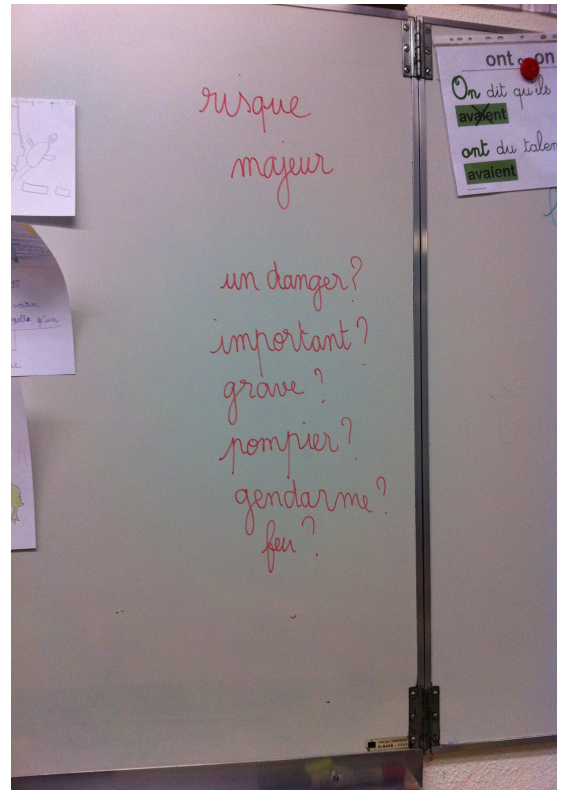 risque
majeur
un danger?
important?
grave?
pompier?
gendarme?
feu?
ont on
On dit qu'ils
avaient
ont du talen
avaient